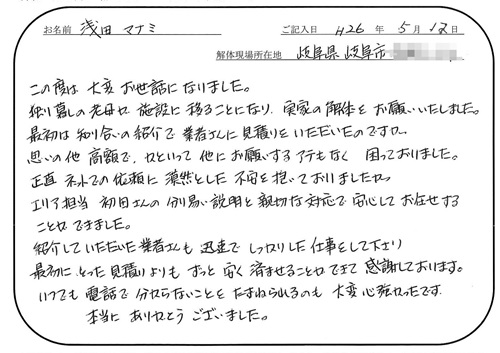 お名前 浅田 マナミ ご記入日 H26 年 5 月 12 日
解体現場所在地 岐阜県 岐阜市
この度は 大変 お世話になりました。
独り暮しの老母が 施設に 移ることになり、実家の解体を お願いいたしました。
最初は 知り合いの紹介で 業者さんに見積りを いただいたのですが、
思いの他 高額で、かといって 他にお願いするアテもなく 困っておりました。
正直 ネットでの依頼に 漠然とした 不安を抱いておりましたが、
エリア担当 初田さんの 分り易い説明と親切な対応で 安心してお任せする
ことができました。
紹介していただいた業者さんも 迅速で しっかりした仕事をして下さり
最初にとった見積りよりも ずっと安く済ませることができて 感謝しております。
いつでも 電話で 分からないことを たずねられるのも 大変心強かったです。
本当に ありがとう ございました。